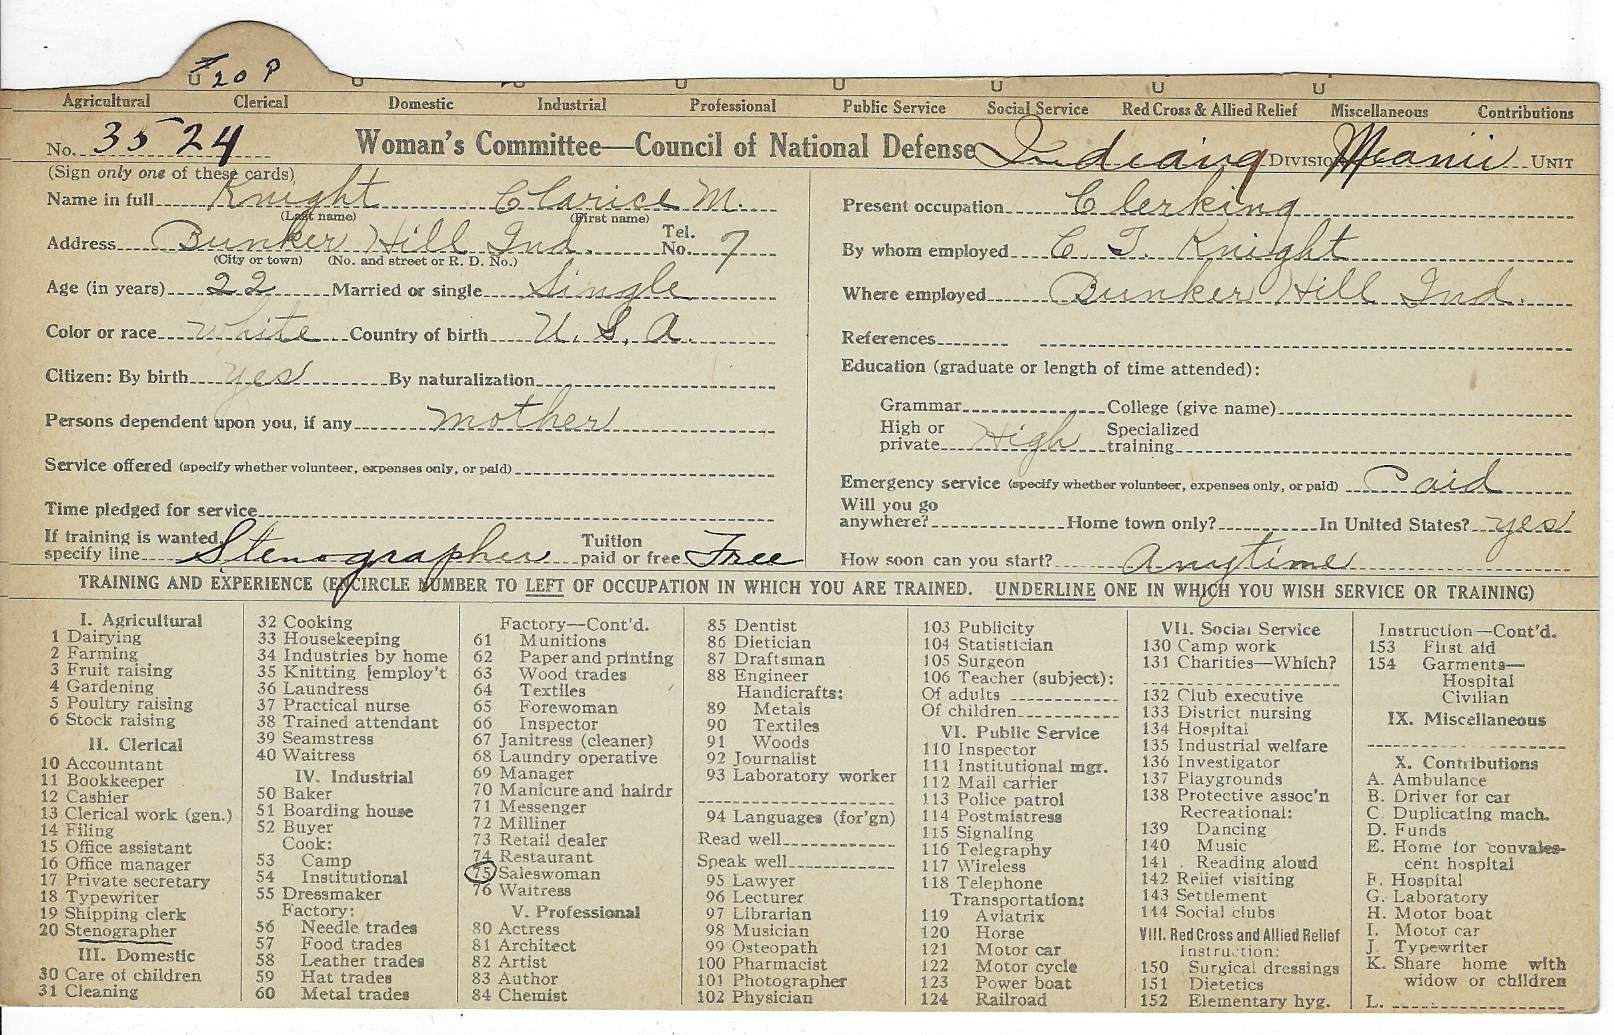 20 P
U U U U U U U U
Agricultural Clerical Domestic Industrial Professional Public Service Social Service Red Cross & Allied Relief Miscellaneous Contributions
No. 3524 Woman's Committee—Council of National Defense Indiana DIVISION Meamii UNIT
(Sign only one of these cards)
Name in full Knight Clarice M.
(Last name) (First name)
Address Bunker Hill Ind. Tel. No. 7
(City or town) (No. and street or R. D. No.)
Age (in years) 22 Married or single Single
Color or race white Country of birth U. S. A.
Citizen: By birth yes By naturalization
Persons dependent upon you, if any mother
Service offered (specify whether volunteer, expenses only, or paid)
Time pledged for service
If training is wanted, specify line Stenographer Tuition paid or free Free
Present occupation Clerking
By whom employed C. T. Knight
Where employed Bunker Hill Ind.
References
Education (graduate or length of time attended):
Grammar College (give name)
High or private High Specialized training
Emergency service (specify whether volunteer, expenses only, or paid) Paid
Will you go anywhere? Home town only? In United States? yes
How soon can you start? Anytime
TRAINING AND EXPERIENCE (ENCIRCLE NUMBER TO LEFT OF OCCUPATION IN WHICH YOU ARE TRAINED. UNDERLINE ONE IN WHICH YOU WISH SERVICE OR TRAINING)
I. Agricultural
1 Dairying
2 Farming
3 Fruit raising
4 Gardening
5 Poultry raising
6 Stock raising
II. Clerical
10 Accountant
11 Bookkeeper
12 Cashier
13 Clerical work (gen.)
14 Filing
15 Office assistant
16 Office manager
17 Private secretary
18 Typewriter
19 Shipping clerk
20 Stenographer
III. Domestic
30 Care of children
31 Cleaning
32 Cooking
33 Housekeeping
34 Industries by home
35 Knitting [employ't
36 Laundress
37 Practical nurse
38 Trained attendant
39 Seamstress
40 Waitress
IV. Industrial
50 Baker
51 Boarding house
52 Buyer
Cook:
53 Camp
54 Institutional
55 Dressmaker
Factory:
56 Needle trades
57 Food trades
58 Leather trades
59 Hat trades
60 Metal trades
Factory—Cont'd.
61 Munitions
62 Paper and printing
63 Wood trades
64 Textiles
65 Forewoman
66 Inspector
67 Janitress (cleaner)
68 Laundry operative
69 Manager
70 Manicure and hairdr
71 Messenger
72 Milliner
73 Retail dealer
74 Restaurant
75 Saleswoman
76 Waitress
V. Professional
80 Actress
81 Architect
82 Artist
83 Author
84 Chemist
85 Dentist
86 Dietician
87 Draftsman
88 Engineer
Handicrafts:
89 Metals
90 Textiles
91 Woods
92 Journalist
93 Laboratory worker
94 Languages (for'gn)
Read well
Speak well
95 Lawyer
96 Lecturer
97 Librarian
98 Musician
99 Osteopath
100 Pharmacist
101 Photographer
102 Physician
103 Publicity
104 Statistician
105 Surgeon
106 Teacher (subject):
Of adults
Of children
VI. Public Service
110 Inspector
111 Institutional mgr.
112 Mail carrier
113 Police patrol
114 Postmistress
115 Signaling
116 Telegraphy
117 Wireless
118 Telephone
Transportation:
119 Aviatrix
120 Horse
121 Motor car
122 Motor cycle
123 Power boat
124 Railroad
VII. Social Service
130 Camp work
131 Charities—Which?
132 Club executive
133 District nursing
134 Hospital
135 Industrial welfare
136 Investigator
137 Playgrounds
138 Protective assoc'n
Recreational:
139 Dancing
140 Music
141 Reading aloud
142 Relief visiting
143 Settlement
144 Social clubs
VIII. Red Cross and Allied Relief
Instruction:
150 Surgical dressings
151 Dietetics
152 Elementary hyg.
Instruction—Cont'd.
153 First aid
154 Garments—
Hospital
Civilian
IX. Miscellaneous
X. Contributions
A. Ambulance
B. Driver for car
C. Duplicating mach.
D. Funds
E. Home for convales-
cent hospital
F. Hospital
G. Laboratory
H. Motor boat
I. Motor car
J. Typewriter
K. Share home with
widow or children
L.